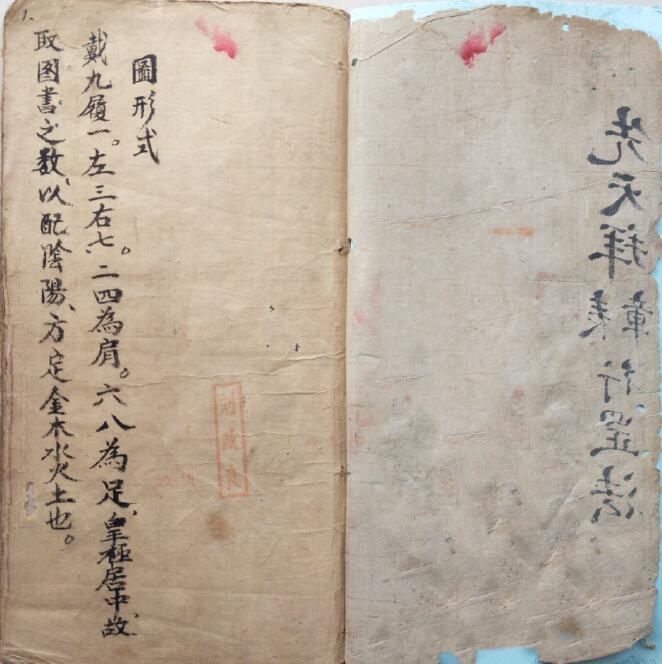 先天拜章表行罡法
圖形式
戴九履一。左三右七。二四為肩。六八為足、皇極居中、故
取图書之数、以配陰陽、方定金木水火土也。
1.